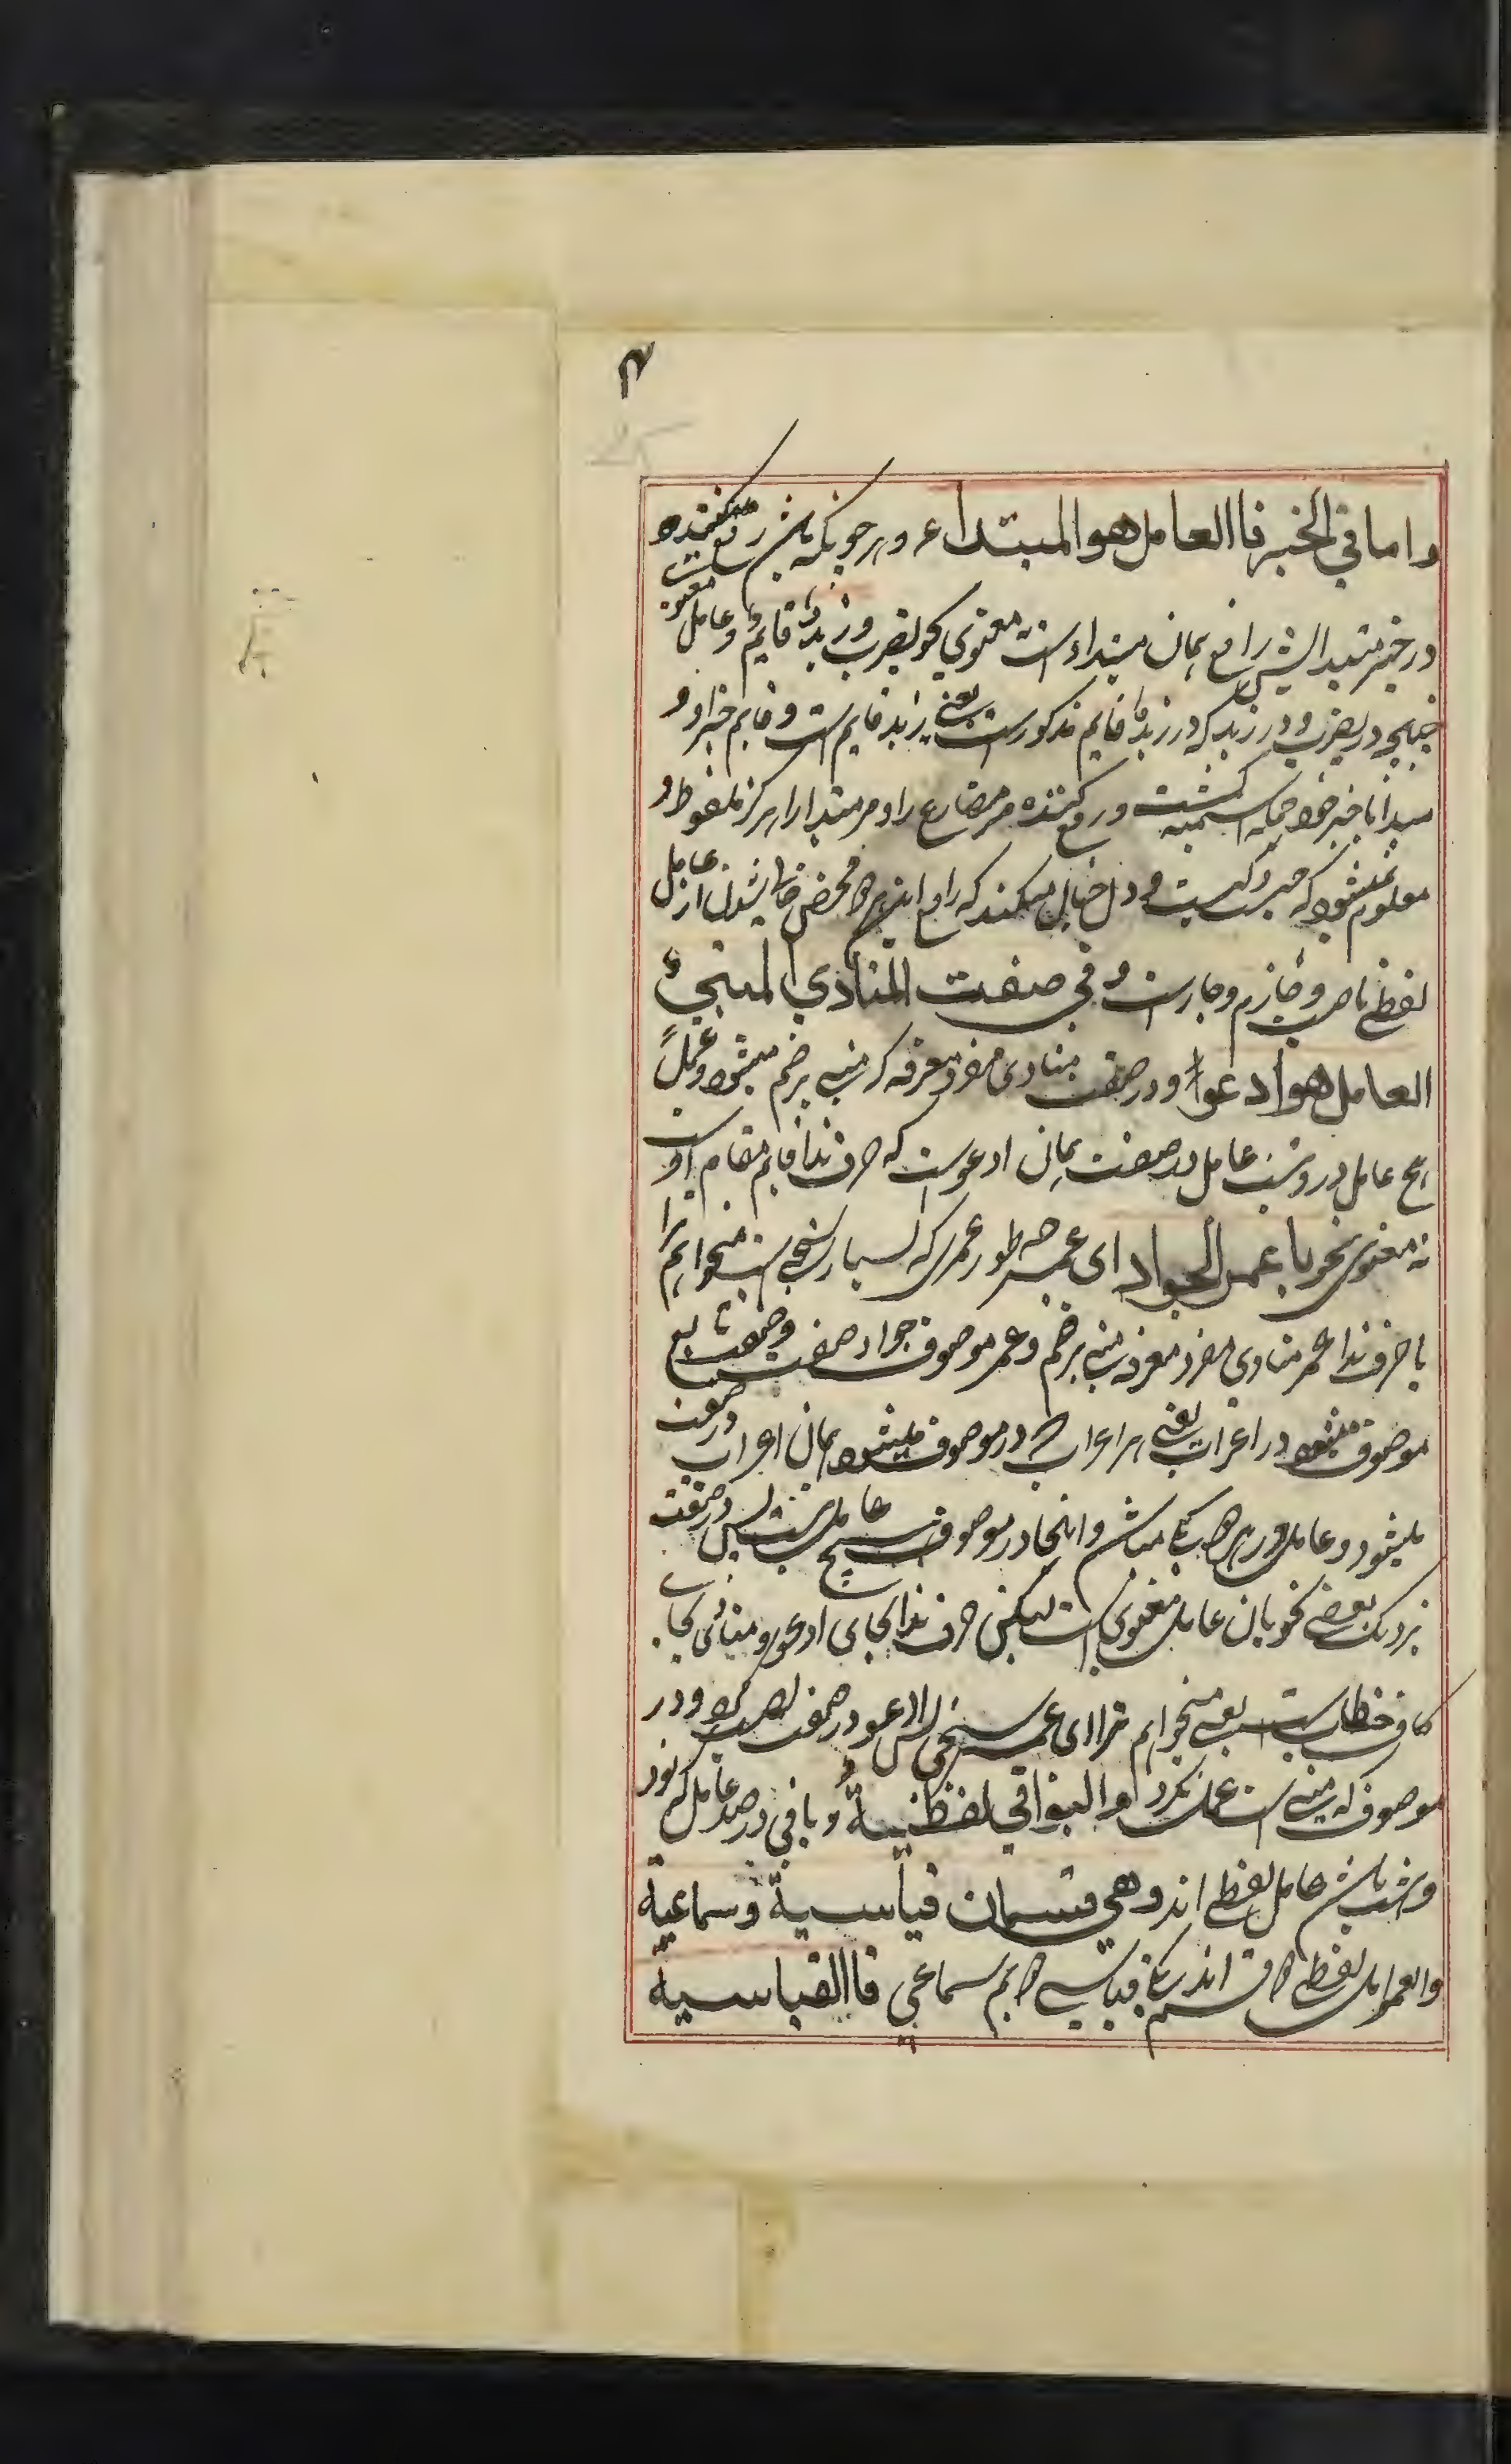 ۴
واما في الخبر فاالعامل هو المبتداء و هر چونکه باشد رفع کننده
در خبر مبتدا پس رافع همان مبتداء است معنوی نحو یضرب و زیدٌ قایمٌ و عامل معنوی است
چنانچه در یضرب و در زید که در زیدٌ قایم مذکور است یعنی زید قایم است و قایم خبر او و
مبتدا با خبر خود جمله اسمیه گشت و رفع کننده مر مضارع را و مر مبتدا را هرگز ملفوظ و
معلوم نمیشود که چیز و کیست در دل خیال میکنند که رافع این هر دو محض خالی شدن از عامل
لفظی ناصب و جازم و جار است و في صفت المنادي المبنيّ
العامل هو ادعوا و در صفت منادی مفرد معرفه که مبنی بر ضم میشود و عمل
هیچ عامل در و نیست عامل در صفت همان ادعو است که حرف ندا قایم مقام او است
نه معنوی نحو یا عمر الجواد ای عمر چه طور عمر که بسیار سخی است میخوانم ترا
یا حرف ندا عمر منادی مفرد معرفه مبنی بر ضم و عمر موصوف جواد صفت و صفت تابع
موصوف میشود در اعراب یعنی هر اعراب که در موصوف میشود همان اعراب در صفت
میشود و عامل در هر دو یکی میباشد و اینجا در موصوف هیچ عامل نیست پس در صفت
نزدیک بعضی نحویان عامل معنوی است لیکن حرف ندا بجای ادعو و منادی بجای
کاف خطاب است یعنی میخوانم ترا ای عمر سخی پس ادعو در صفت نصب کرد و در
موصوف که مبنی است عمل نکرد والبواقي لفظيةٌ و باقی در صد عامل که نود
و شش باشد عامل لفظی اند وهي قسمان قياسيةٌ وسماعيةٌ
والعوامل لفظی دو قسم اند یکی قیاسی دویم سماعی فاالقياسية